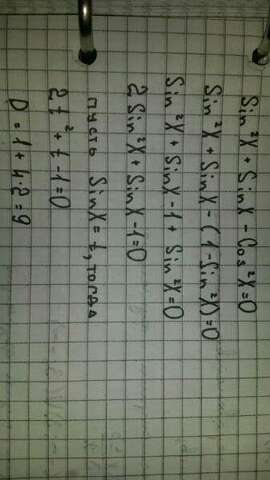 Sin²x + Sinx - Cos²x=0
Sin²x + Sinx - (1-Sin²x)=0
Sin²x + Sinx - 1 + Sin²x=0
2Sin²x + Sinx - 1=0
пусть Sinx = t, тогда
2t² + t - 1=0
D = 1 + 4·2 = 9